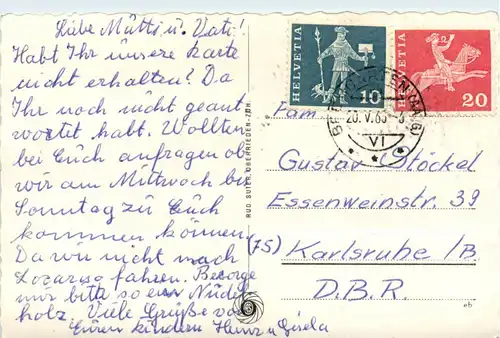 Liebe Mutti u. Vati!
Habt Ihr unsere Karte
nicht erhalten? Da
Ihr noch nicht geant
wortet habt. Wollten
bei Euch anfragen ob
wir am Mittwoch bis
Sonntag zu Euch
kommen können.
Da wir nicht nach
fahren. Besorge
mir bitte so ein Nudel
holz. Viele Grüße von
Euren Kindern Heinz u Gisela
RUD. SUTER, OBERRIEDEN-ZCH.
HELVETIA
10
HELVETIA
20
20.V.
VI
Fam.
Gustav Stöckel
Essenweinstr. 39
(75) Karlsruhe /B.
D.B.R.